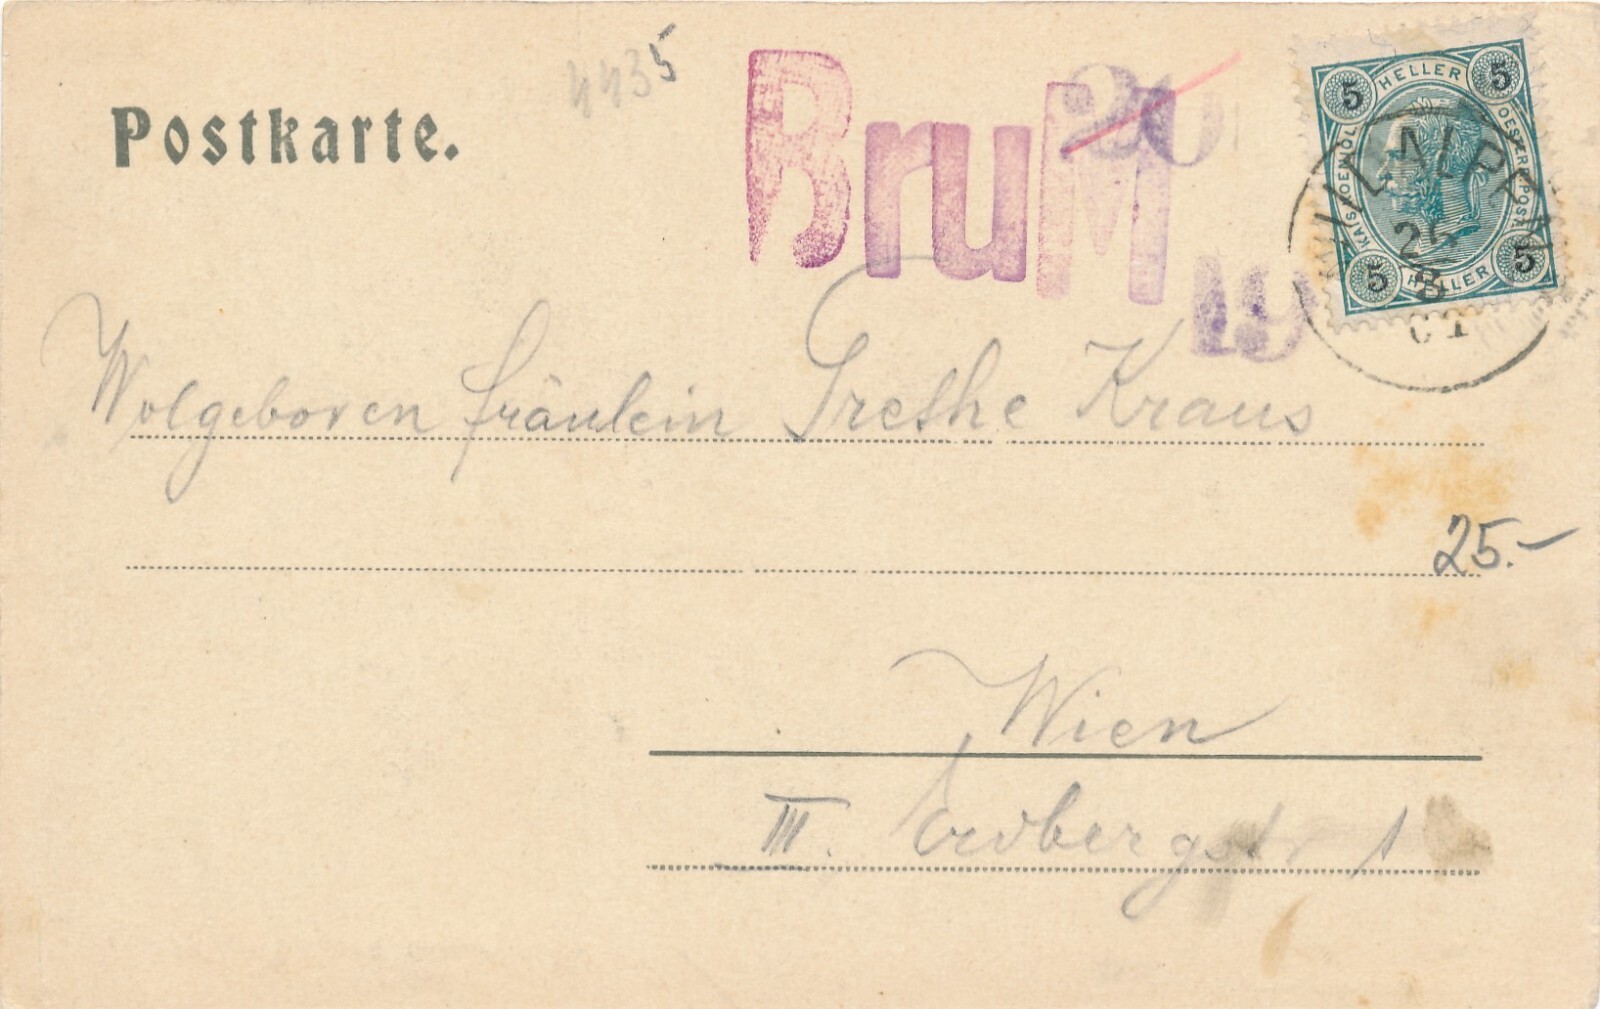 4435
Postkarte.
BruM
20
19
5 HELLER 5
KAIS. KOENIGL. OESTERR. POST
5 HELLER 5
WILDALPEN
01
Wolgeboren Fräulein Grethe Kraus
25.-
Wien
III. Erdbergstr 1